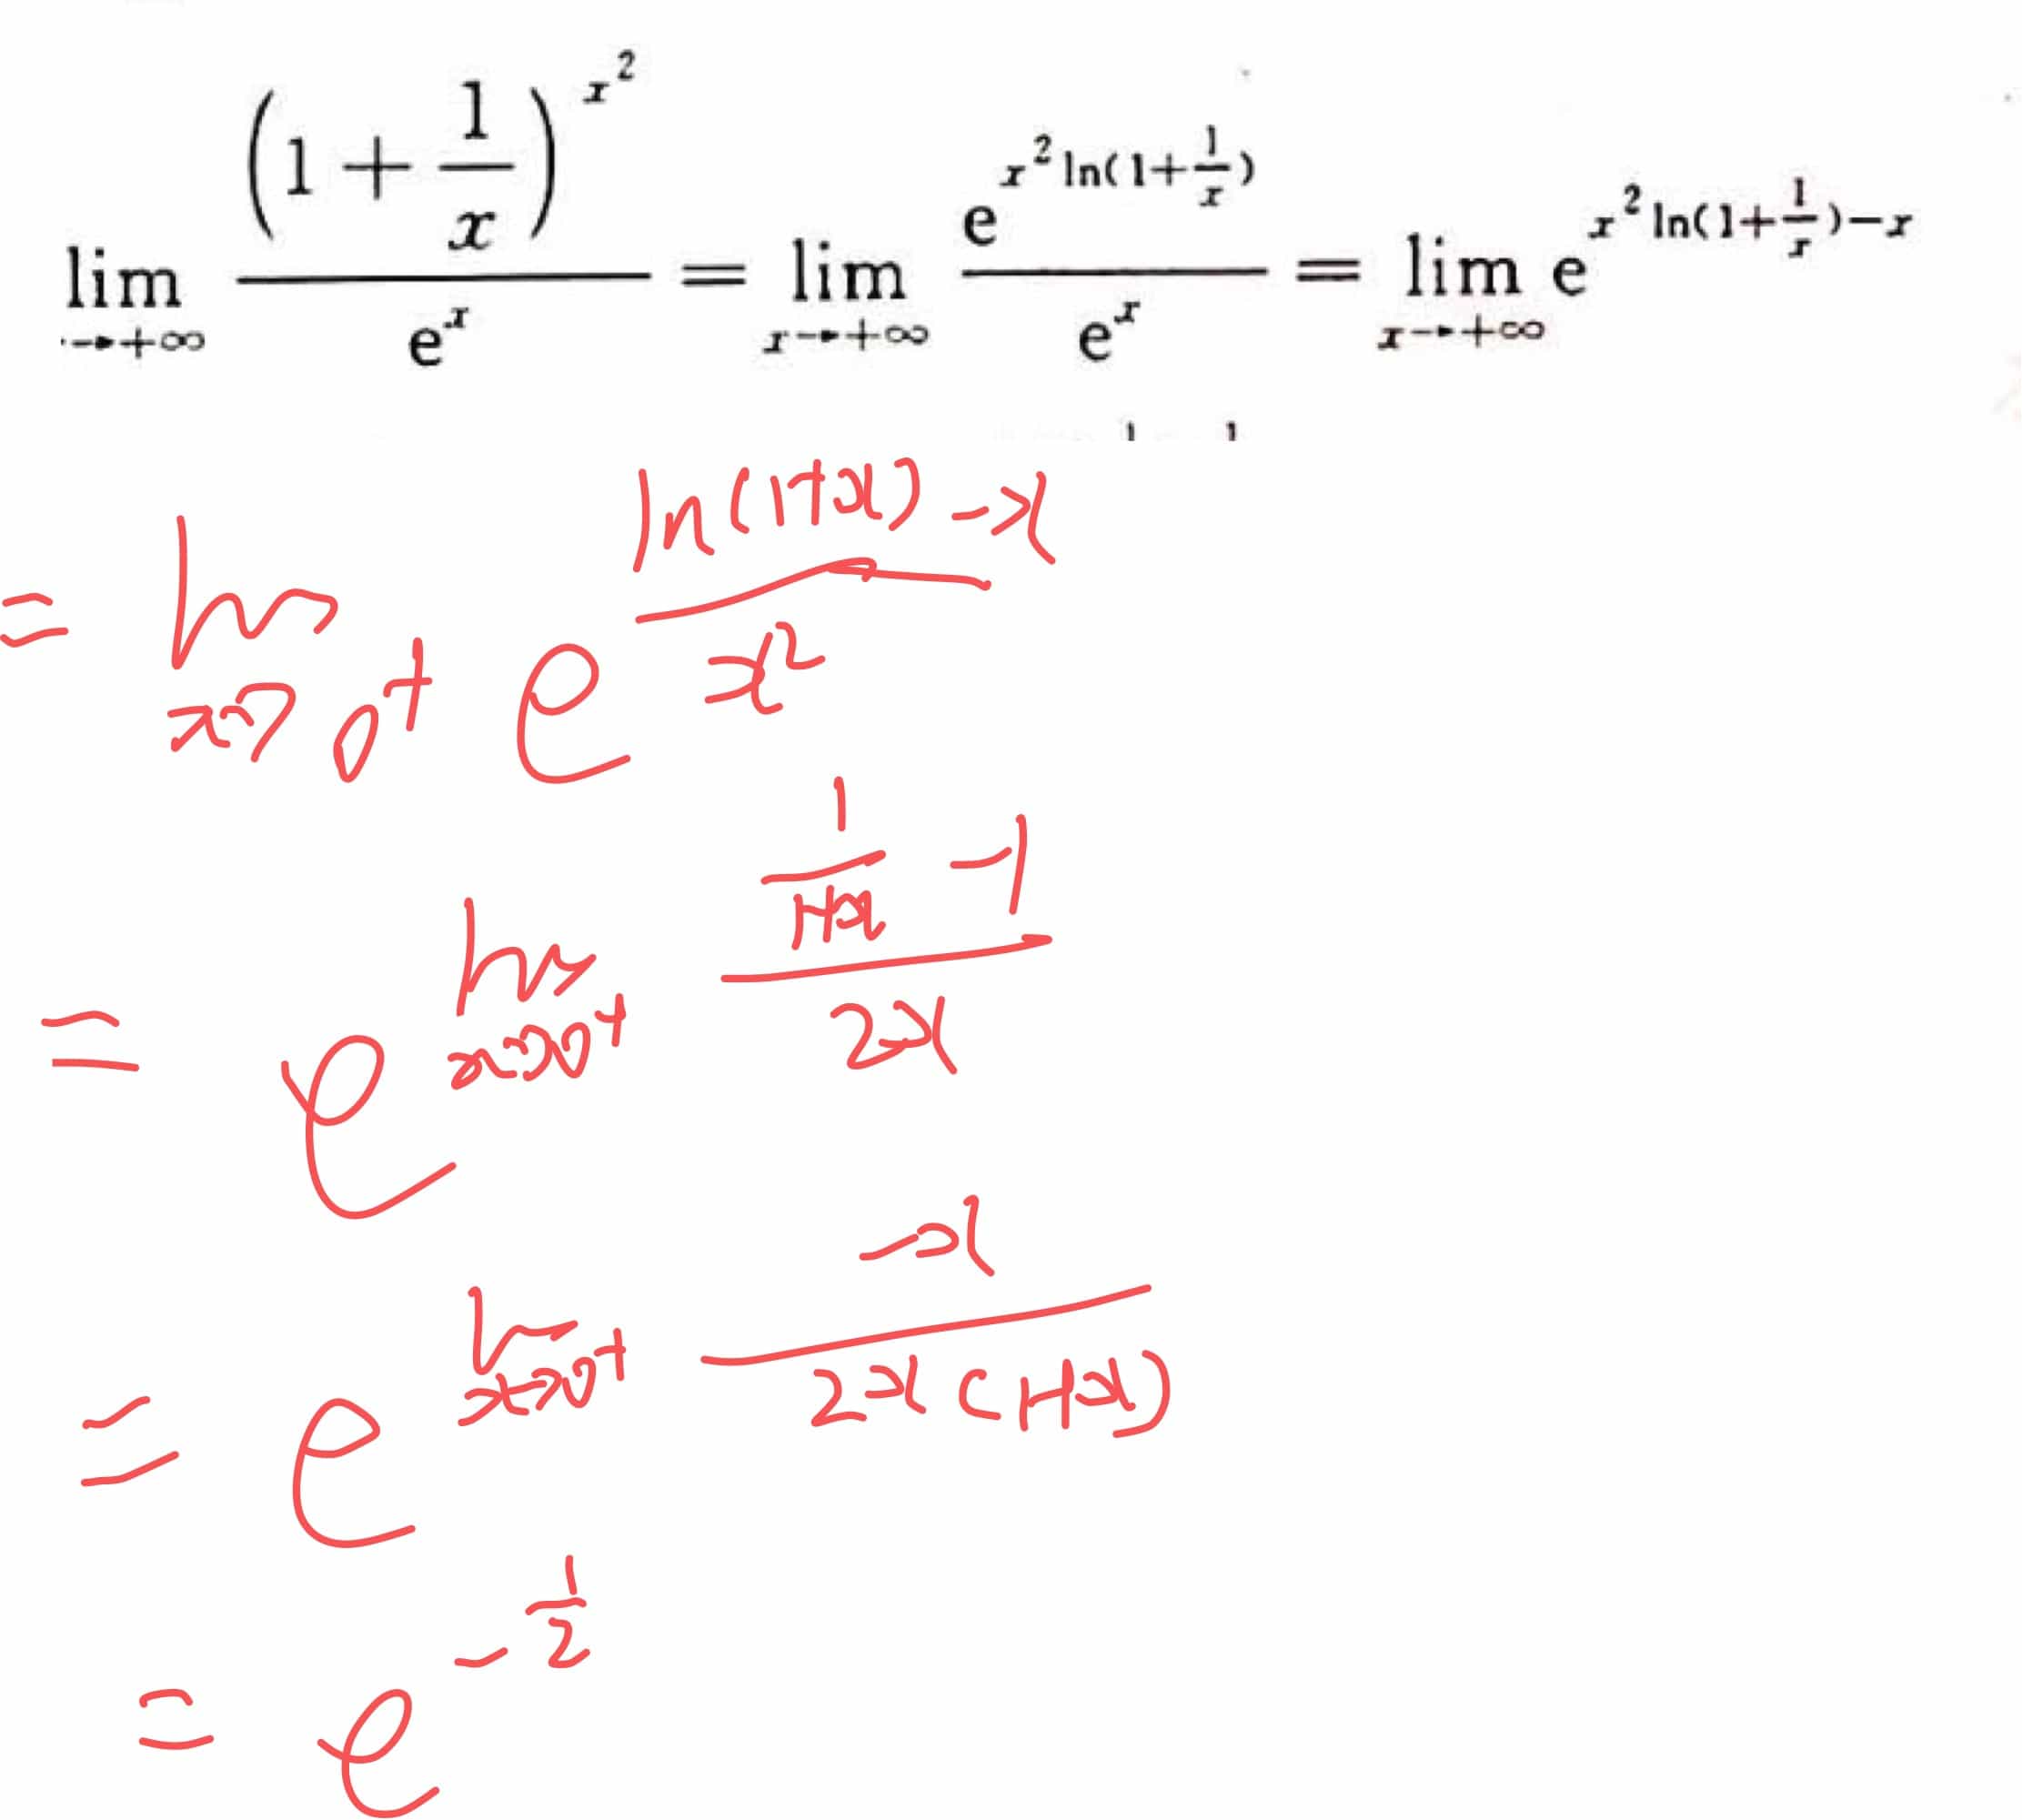 lim_{→+∞} (1+1/x)^{x^2} / e^x = lim_{x→+∞} e^{x^2 ln(1+1/x)} / e^x = lim_{x→+∞} e^{x^2 ln(1+1/x)-x}
= lim_{x→0^+} e^{(ln(1+x)-x)/x^2}
= e^{lim_{x→0^+} (1/(1+x) -1)/(2x)}
= e^{lim_{x→0^+} -x/(2x(1+x))}
= e^{-1/2}